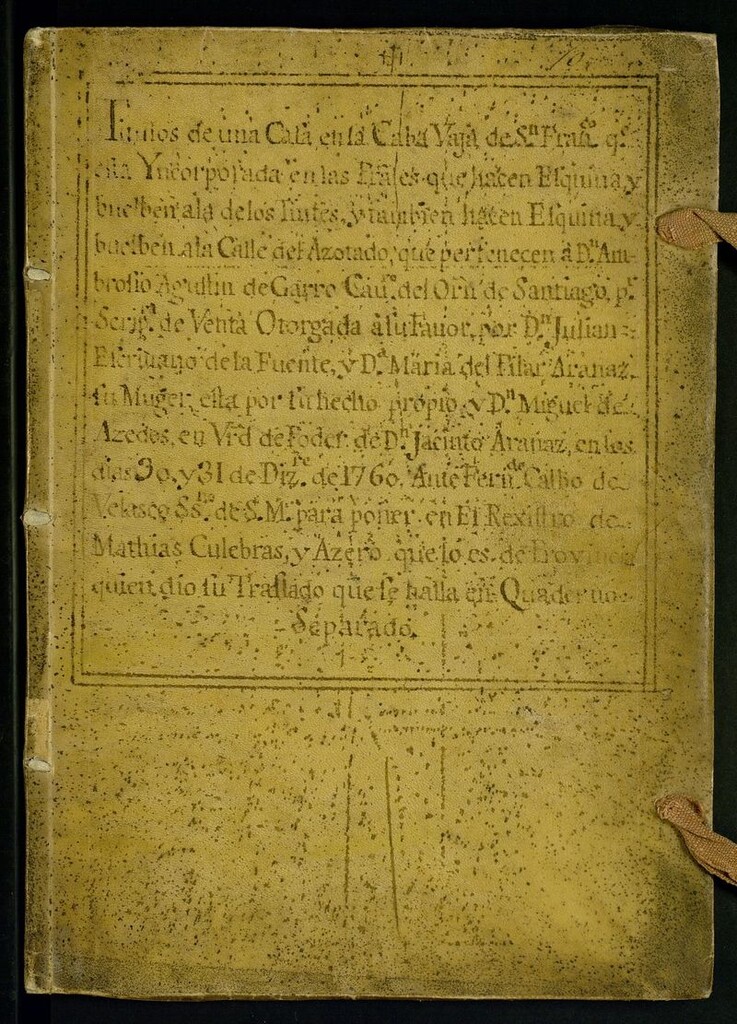 Titulos de una Casa en la Caba Vaja de Sn. Franco. q.
esta Yncorporada en las Pral.es que hacen Esquina, y
buelben ala de los Tintes, y tambien hacen Esquina, y
buelben ala Calle del Azotado, que pertenecen à Dn. Am-
brosio Agustin de Garro Cauo. del Orn. de Santiago, pr.
Scrip.ra de Venta Otorgada à su favor, por Dn. Julian =
Escriuano de la Fuente, y Da. Maria del Pilar Aranaz,
su Muger, esta por su hecho propio, y Dn. Miguel de
Azedos, en Vrd. de Poder de Dn. Jacinto Aranaz, en los
dias 30, y 31 de Dizre. de 1760. Ante Fernde. Calbo de
Velasco Ssno. de S. M. para poner en El Rexistro de
Mathias Culebras, y Azero que lo es de Provincia
quien dio su Traslado que se halla en Quaderno
Separado.